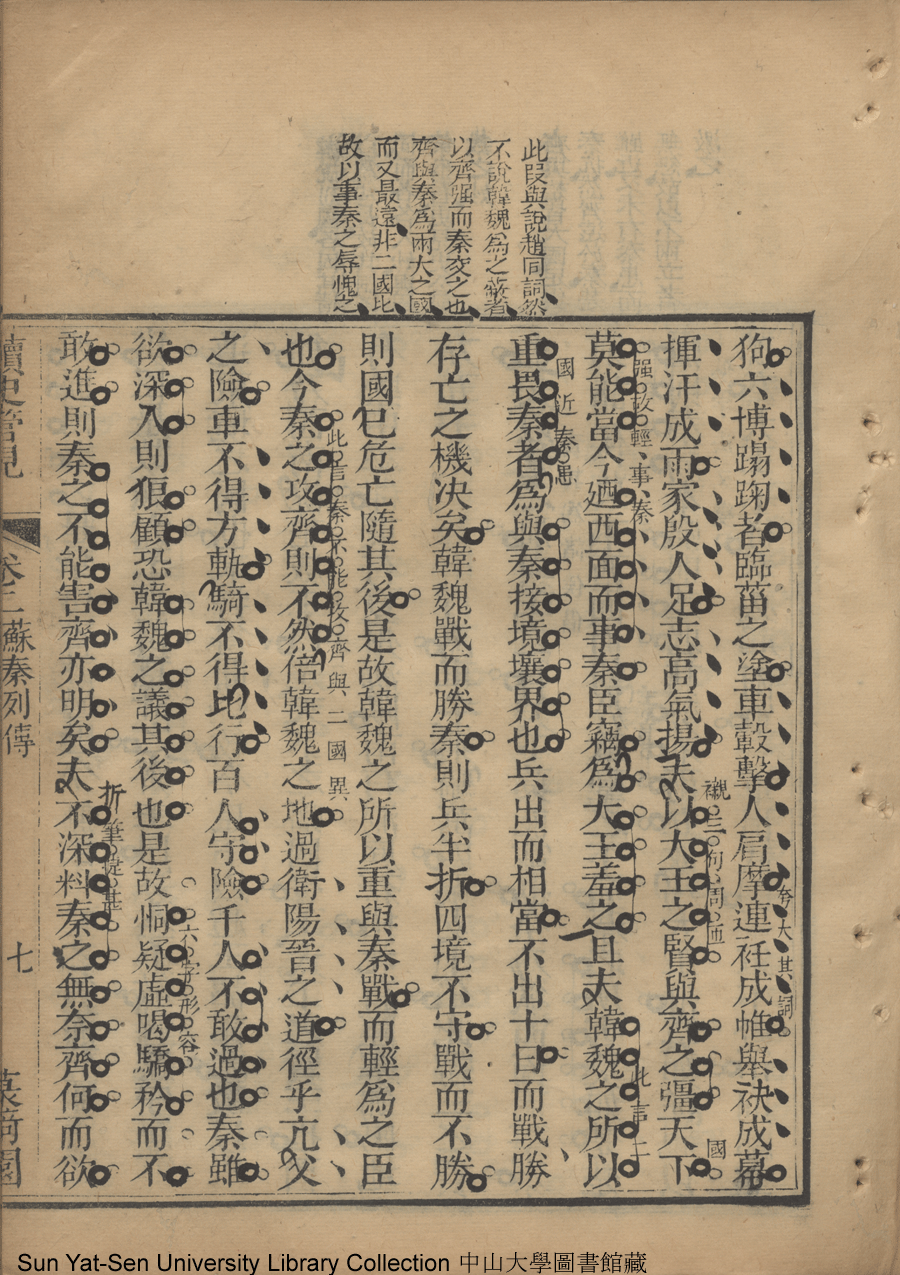 此段與說趙同詞然
不說韓魏為之蔽者
以齊强而秦交之也
齊與秦為兩大之國
而又最遠非二國比
故以事秦之辱愧之
狗六博蹋踘者臨菑之塗車轂擊人肩摩連衽成帷舉袂成幕
夸大其詞
揮汗成雨家殷人足志高氣揚夫以大王之賢與齊之彊天下
襯
國
莫能當今廼西面而事秦臣竊為大王羞之且夫韓魏之所以
强故輕事秦
此言二
重畏秦者為與秦接境壤界也兵出而相當不出十日而戰勝
國近秦患
存亡之機决矣韓魏戰而勝秦則兵半折四境不守戰而不勝
則國已危亡隨其後是故韓魏之所以重與秦戰而輕為之臣
也今秦之攻齊則不然倍韓魏之地過衛陽晉之道徑乎亢父
此言秦不能攻齊與二國異
之險車不得方軌騎不得比行百人守險千人不敢過也秦雖
欲深入則狼顧恐韓魏之議其後也是故恫疑虛喝驕矜而不
六字形容
敢進則秦之不能害齊亦明矣夫不深料秦之無奈齊何而欲
折筆
讀史管見
卷三 蘇秦列傳
七